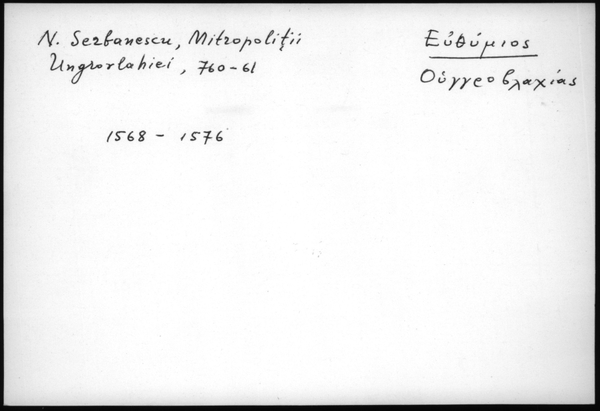 N. Serbanescu, Mitropoliţii
Ungrovlahiei, 760-61
Εὐθύμιος
Οὑγγροβλαχίας
1568 - 1576